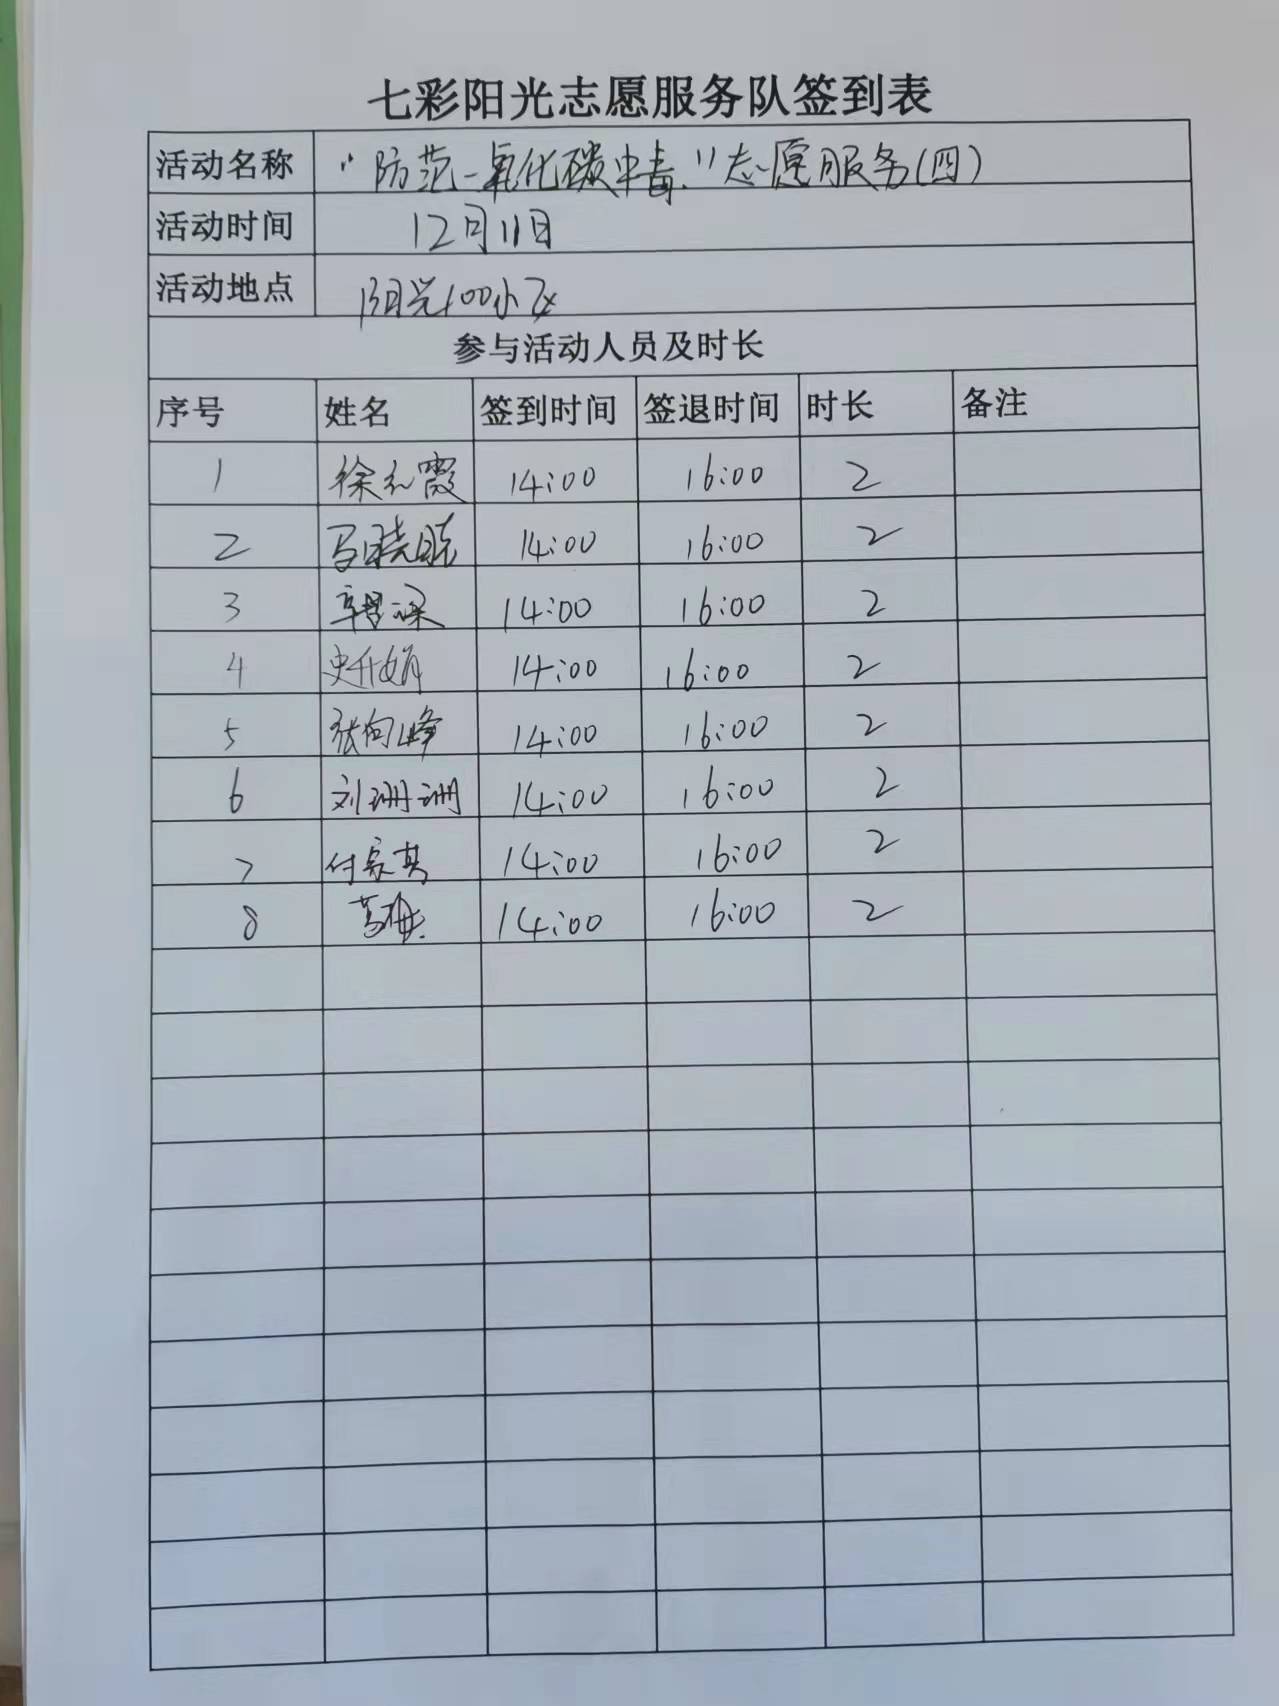 七彩阳光志愿服务队签到表
活动名称 "防范一氧化碳中毒"志愿服务(四)
活动时间 12月11日
活动地点 阳光100小区
参与活动人员及时长
序号 姓名 签到时间 签退时间 时长 备注
1 徐红霞 14:00 16:00 2
2 马晓晓 14:00 16:00 2
3 14:00 16:00 2
4 史升娟 14:00 16:00 2
5 张向峰 14:00 16:00 2
6 刘珊珊 14:00 16:00 2
7 付家其 14:00 16:00 2
8 葛梅 14:00 16:00 2